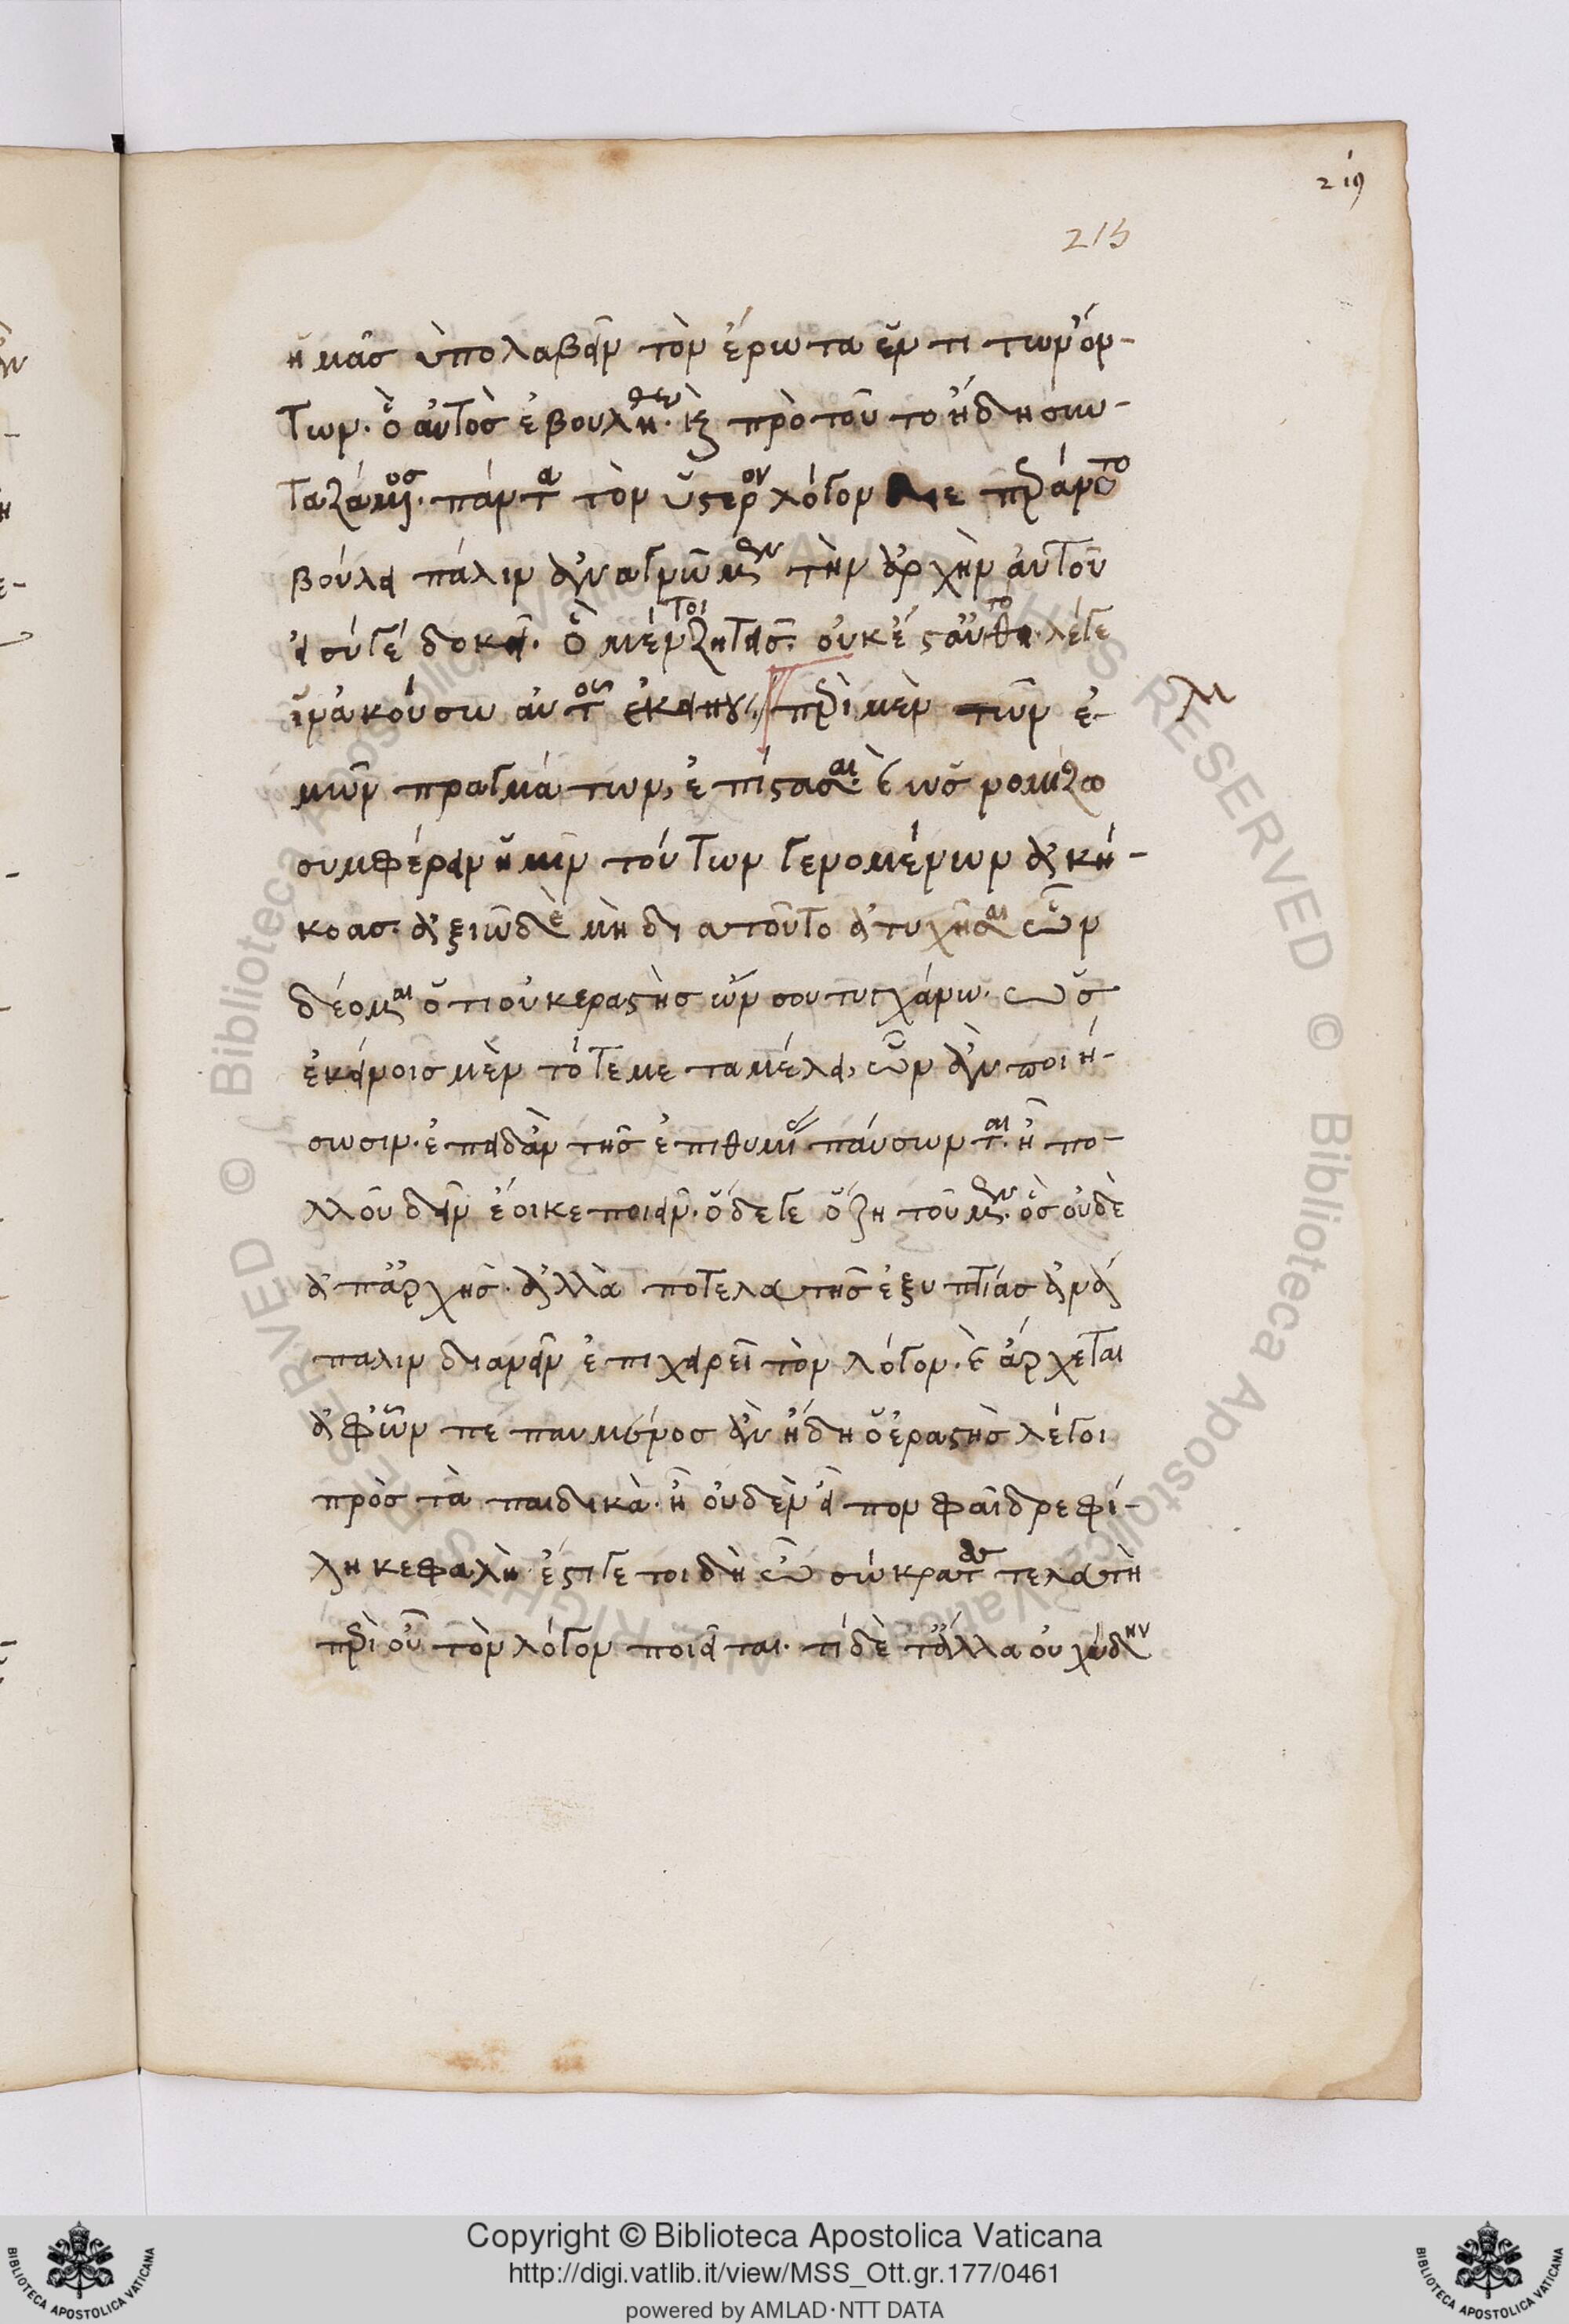 219
215
ἡμᾶσ ὑπολαβεῖν τὸν ἔρωτα ἕν τι τῶν ὄν-
των· ὃ αὐτὸσ ἐβουλήθη· καὶ πρὸσ τοῦτο ἤδη συν-
ταξάμενοσ· πάντα τὸν ὕστερον λόγον διεπεράνατο
βούλει πάλιν ἀναγνῶμεν τὴν ἀρχὴν αὐτοῦ
εἰ σύ γέ δοκεῖ· ὃ μέντοι ζητεῖσ· οὐκ ἔστ' αὐτόθι· λέγε
ἵν' ἀκούσω αὐτοῦ ἐκείνου· περὶ μὲν τῶν ἐ-
μῶν πραγμάτων, ἐπίστασαι· καὶ ὡσ νομίζω
συμφέρειν ἡμῖν τούτων γενομένων ἀκή-
κοασ· ἀξιῶ δὲ μὴ διατοῦτο ἀτυχῆσαι ὧν
δέομαι ὅτι οὐκ ἐραστὴσ ὤν σου τυγχάνω· ὡσ
ἐκείνοισ μὲν τότε μεταμέλει, ὧν ἂν εὖ ποιή-
σωσιν· ἐπειδὰν τῆσ ἐπιθυμίασ παύσωνται· ἦ πο-
λλοῦ δεῖν ἔοικε ποιεῖν· ὅδε γε ὃ ζητοῦμεν· ὃσ οὐδὲ
ἀπ' ἀρχῆσ· ἀλλὰ ποτελευτῆσ ἐξ υπτίασ ἀνά
παλιν διανεῖν ἐπιχειρεῖ τὸν λόγον· καὶ ἄρχεται
ἀφ' ὧν πεπαυμένοσ ἂν ἤδη ὁ ἐραστὴσ λέγοι
πρὸσ τὰ παιδικὰ· ἢ οὐδὲν εἶπον φαῖδρε φί-
λη κεφαλὴ· ἔστι γε τοι δὴ ὦ σώκρατεσ τελευτὴ
περὶ οὗ τὸν λόγον ποιεῖται· τί δὲ τἄλλα οὐ χύδην
Copyright © Biblioteca Apostolica Vaticana
http://digi.vatlib.it/view/MSS_Ott.gr.177/0461
powered by AMLAD·NTT DATA